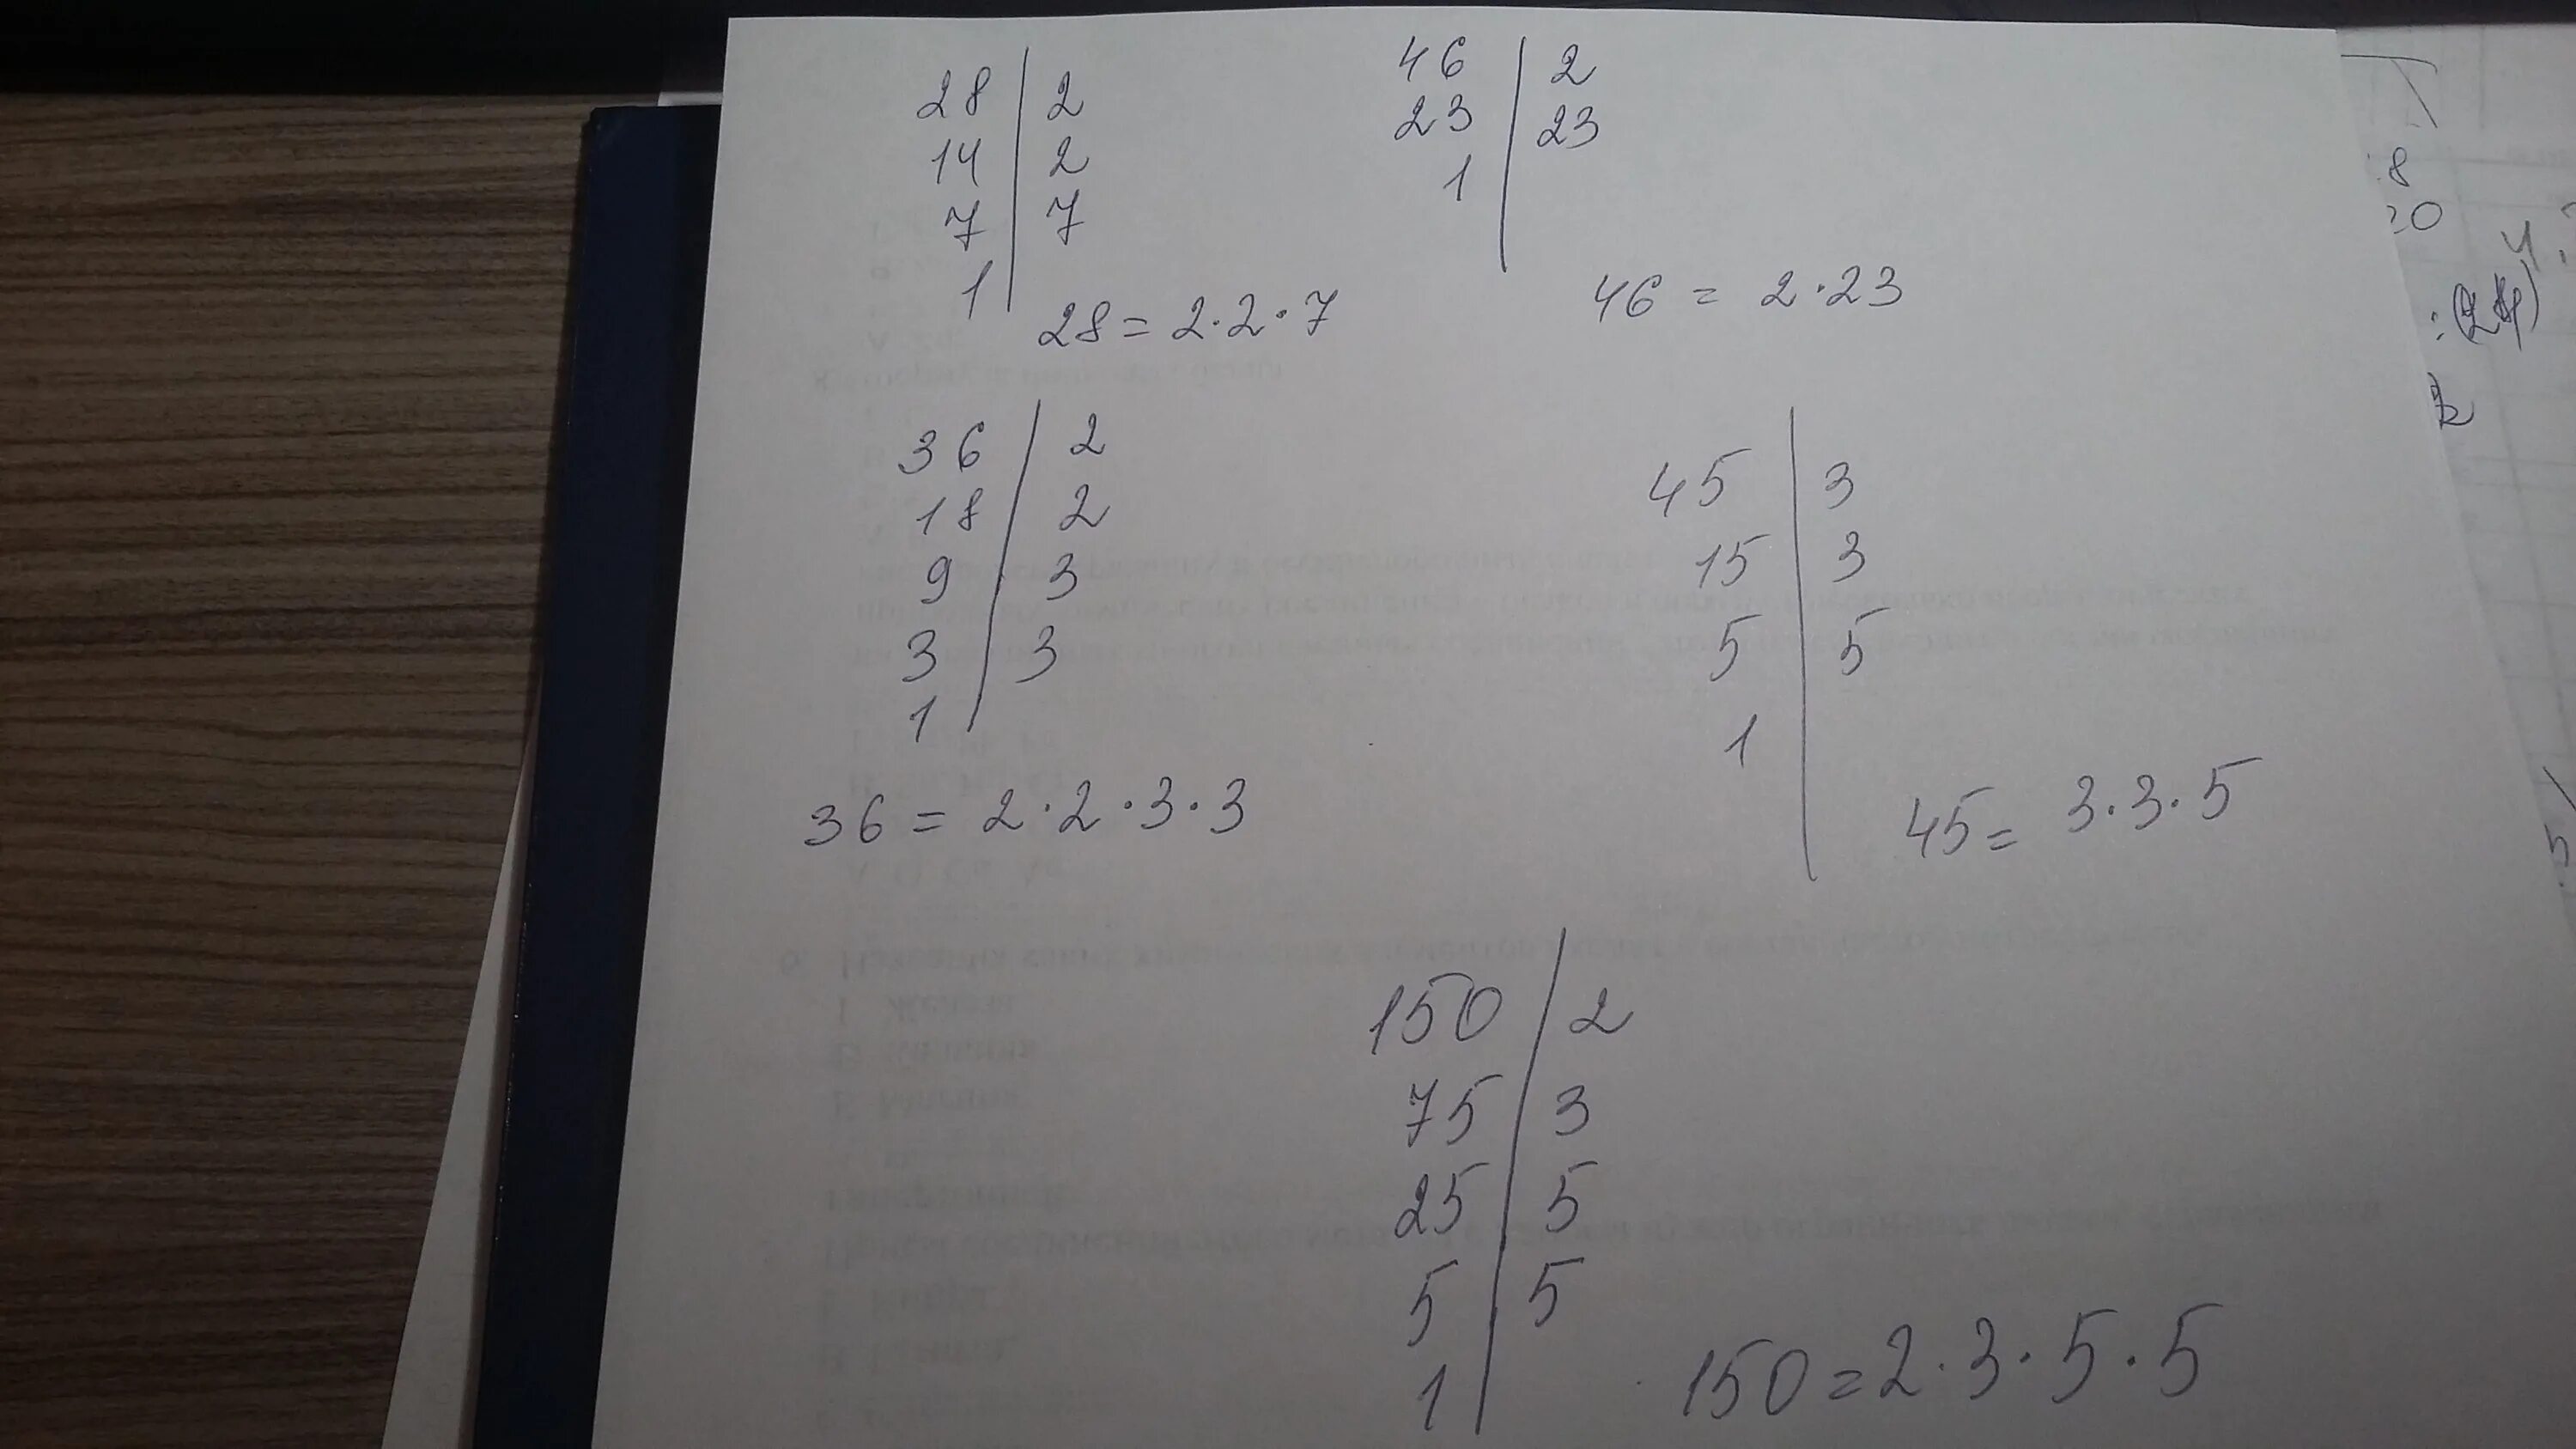 28 | 2
14 | 2
7 | 7
1 |
28 = 2·2·7
46 | 2
23 | 23
1 |
46 = 2·23
36 | 2
18 | 2
9 | 3
3 | 3
1 |
36 = 2·2·3·3
45 | 3
15 | 3
5 | 5
1 |
45 = 3·3·5
150 | 2
75 | 3
25 | 5
5 | 5
1 |
150 = 2·3·5·5
8
20